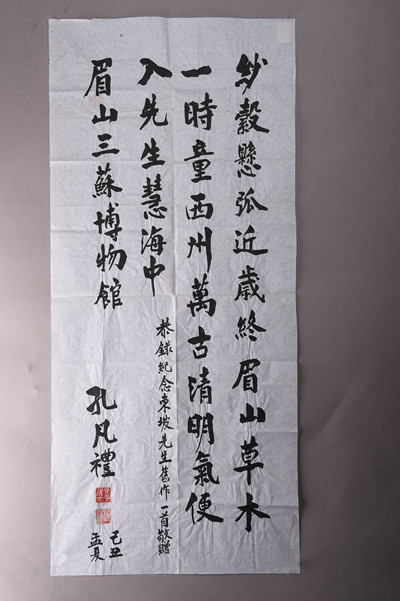 紗縠懸弧近歲終眉山草木
一時童西州萬古清明氣便
入先生慧海中
恭錄紀念東坡先生舊作一首敬贈
眉山三蘇博物館
孔凡禮
己丑
孟夏